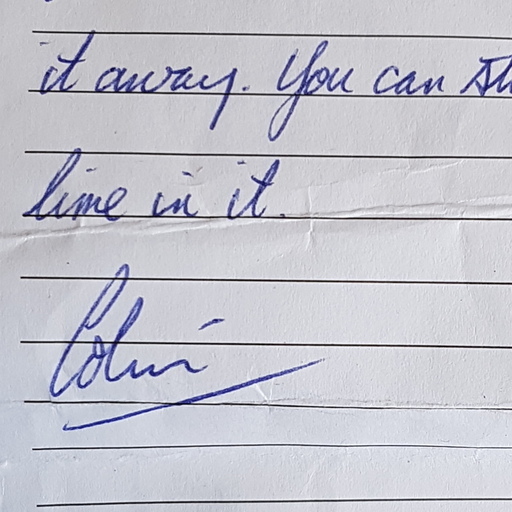 it away. You can
lime in it.
Colin